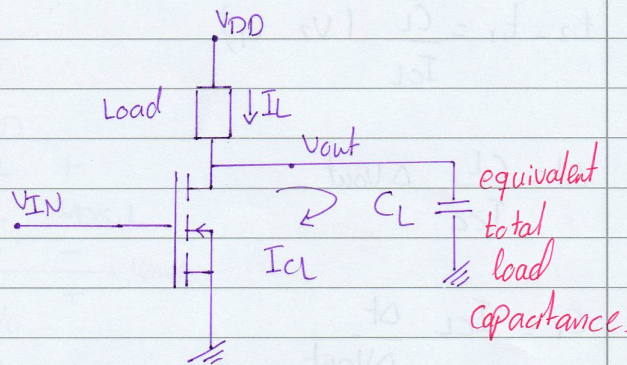 VDD
Load
IL
Vout
VIN
CL
equivalent
total
load
capacitance.
ICL